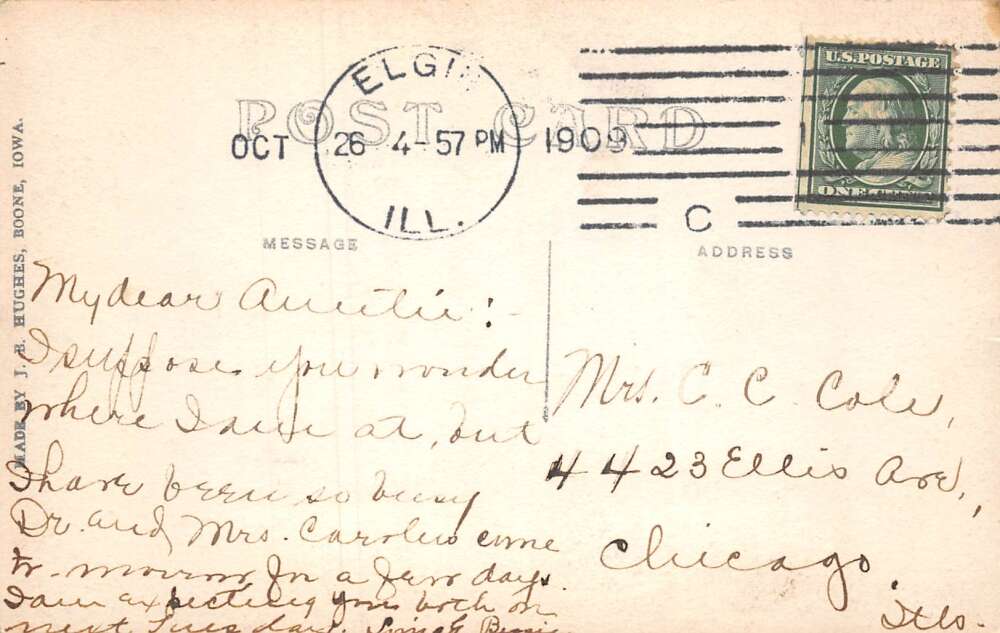 ELGIN
OCT 26 4-57 PM 1909
ILL.
C
U.S. POSTAGE
ONE CENT
POST CARD
MADE BY J. B. HUGHES, BOONE, IOWA.
MESSAGE
My dear Auntie:-
I suppose you wonder
where I am at, but
I have been so busy
Dr. and Mrs. come
to-morrow for a few days.
I am expecting you both on
next Tuesday.
ADDRESS
Mrs. C. C. Cole,
4423 Ellis Ave,
Chicago,
Ills.